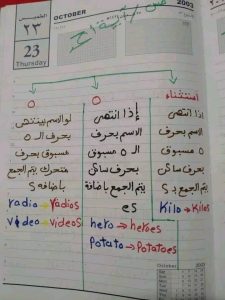 الخميس
OCTOBER
2003
٢٣
23
Thursday
O
O
استثناء
لو الاسم بينتهى
بحرف الـ O
مسبوق بحرف
متحرك يتم الجمع
بإضافه S
radio → radios
video → videos
إذا انتهى
الاسم بحرف
O مسبوق
بحرف ساكن
يتم الجمع بإضافة
es
hero → heroes
Potato → Potatoes
إذا انتهى
الاسم بحرف
O مسبوق
بحرف ساكن
يتم الجمع بـ S
Kilo → Kilos
October
2003